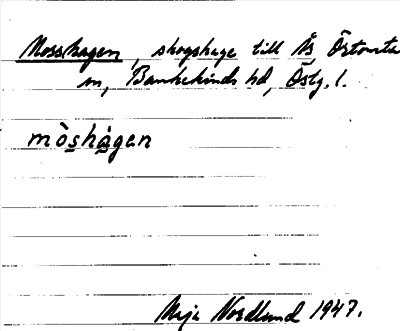 Mosshagen, skogshage till Ås, Örtomta
sn, Bankekinds hd, Östg. l.
mòs̲hà̲gen
Maja Nordlund 1947.